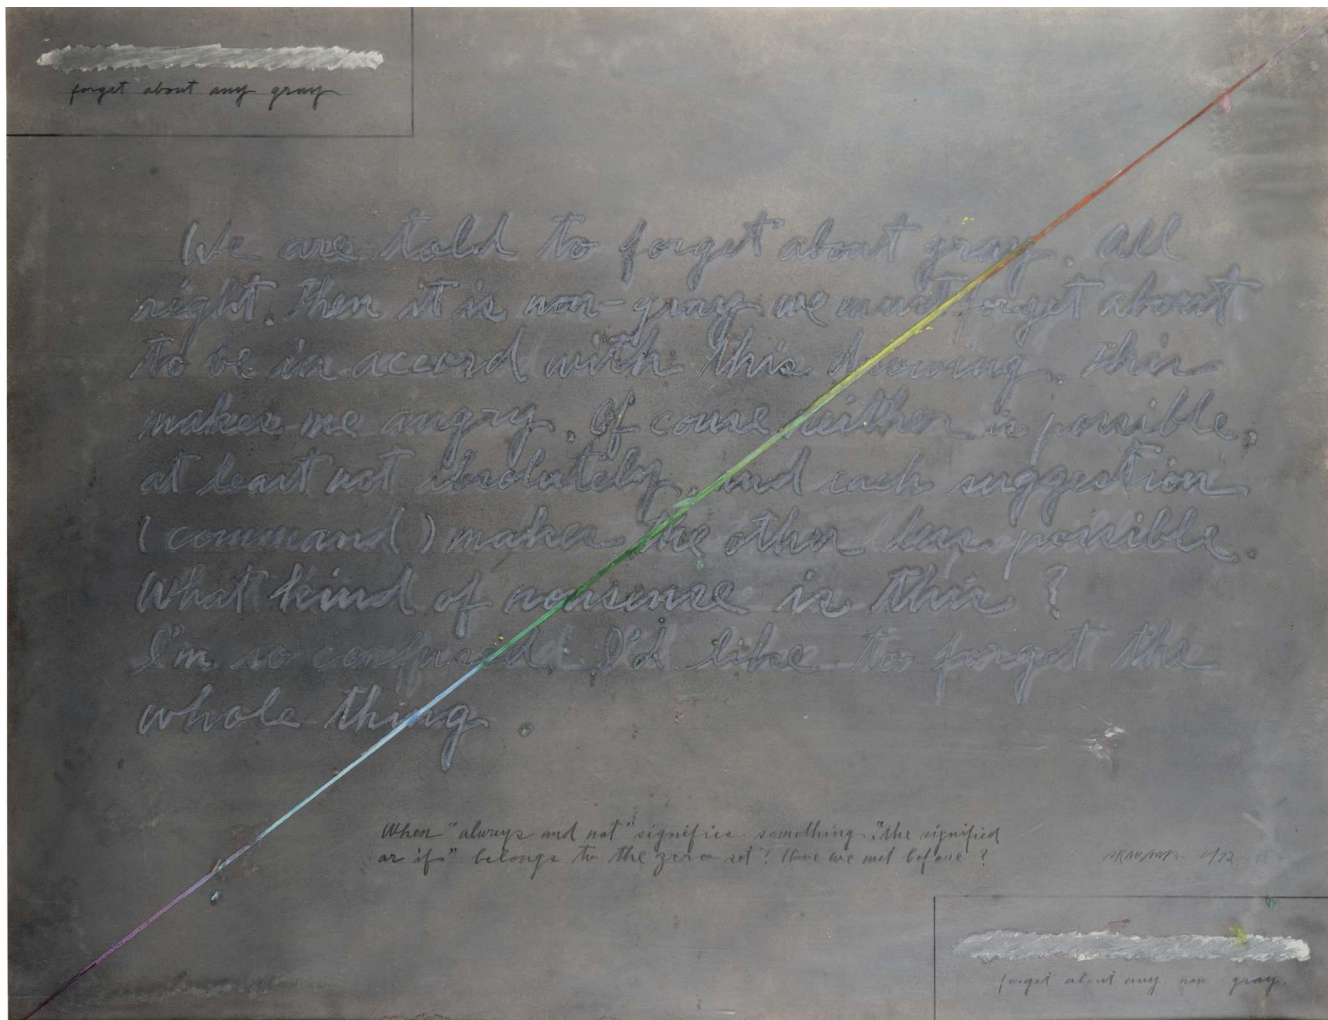 forget about any gray
We are told to forget about gray. All
right. Then it is non-gray we must forget about
to be in accord with this drawing. This
makes me angry. Of course neither is possible,
at least not absolutely, and each suggestion
(command) makes the other less possible.
What kind of nonsense is this?
I'm so confused I'd like to forget the
whole thing.
When "always and not" signifies something, "the signified
or if" belongs to the zero set? Have we met before?
forget about any non gray.